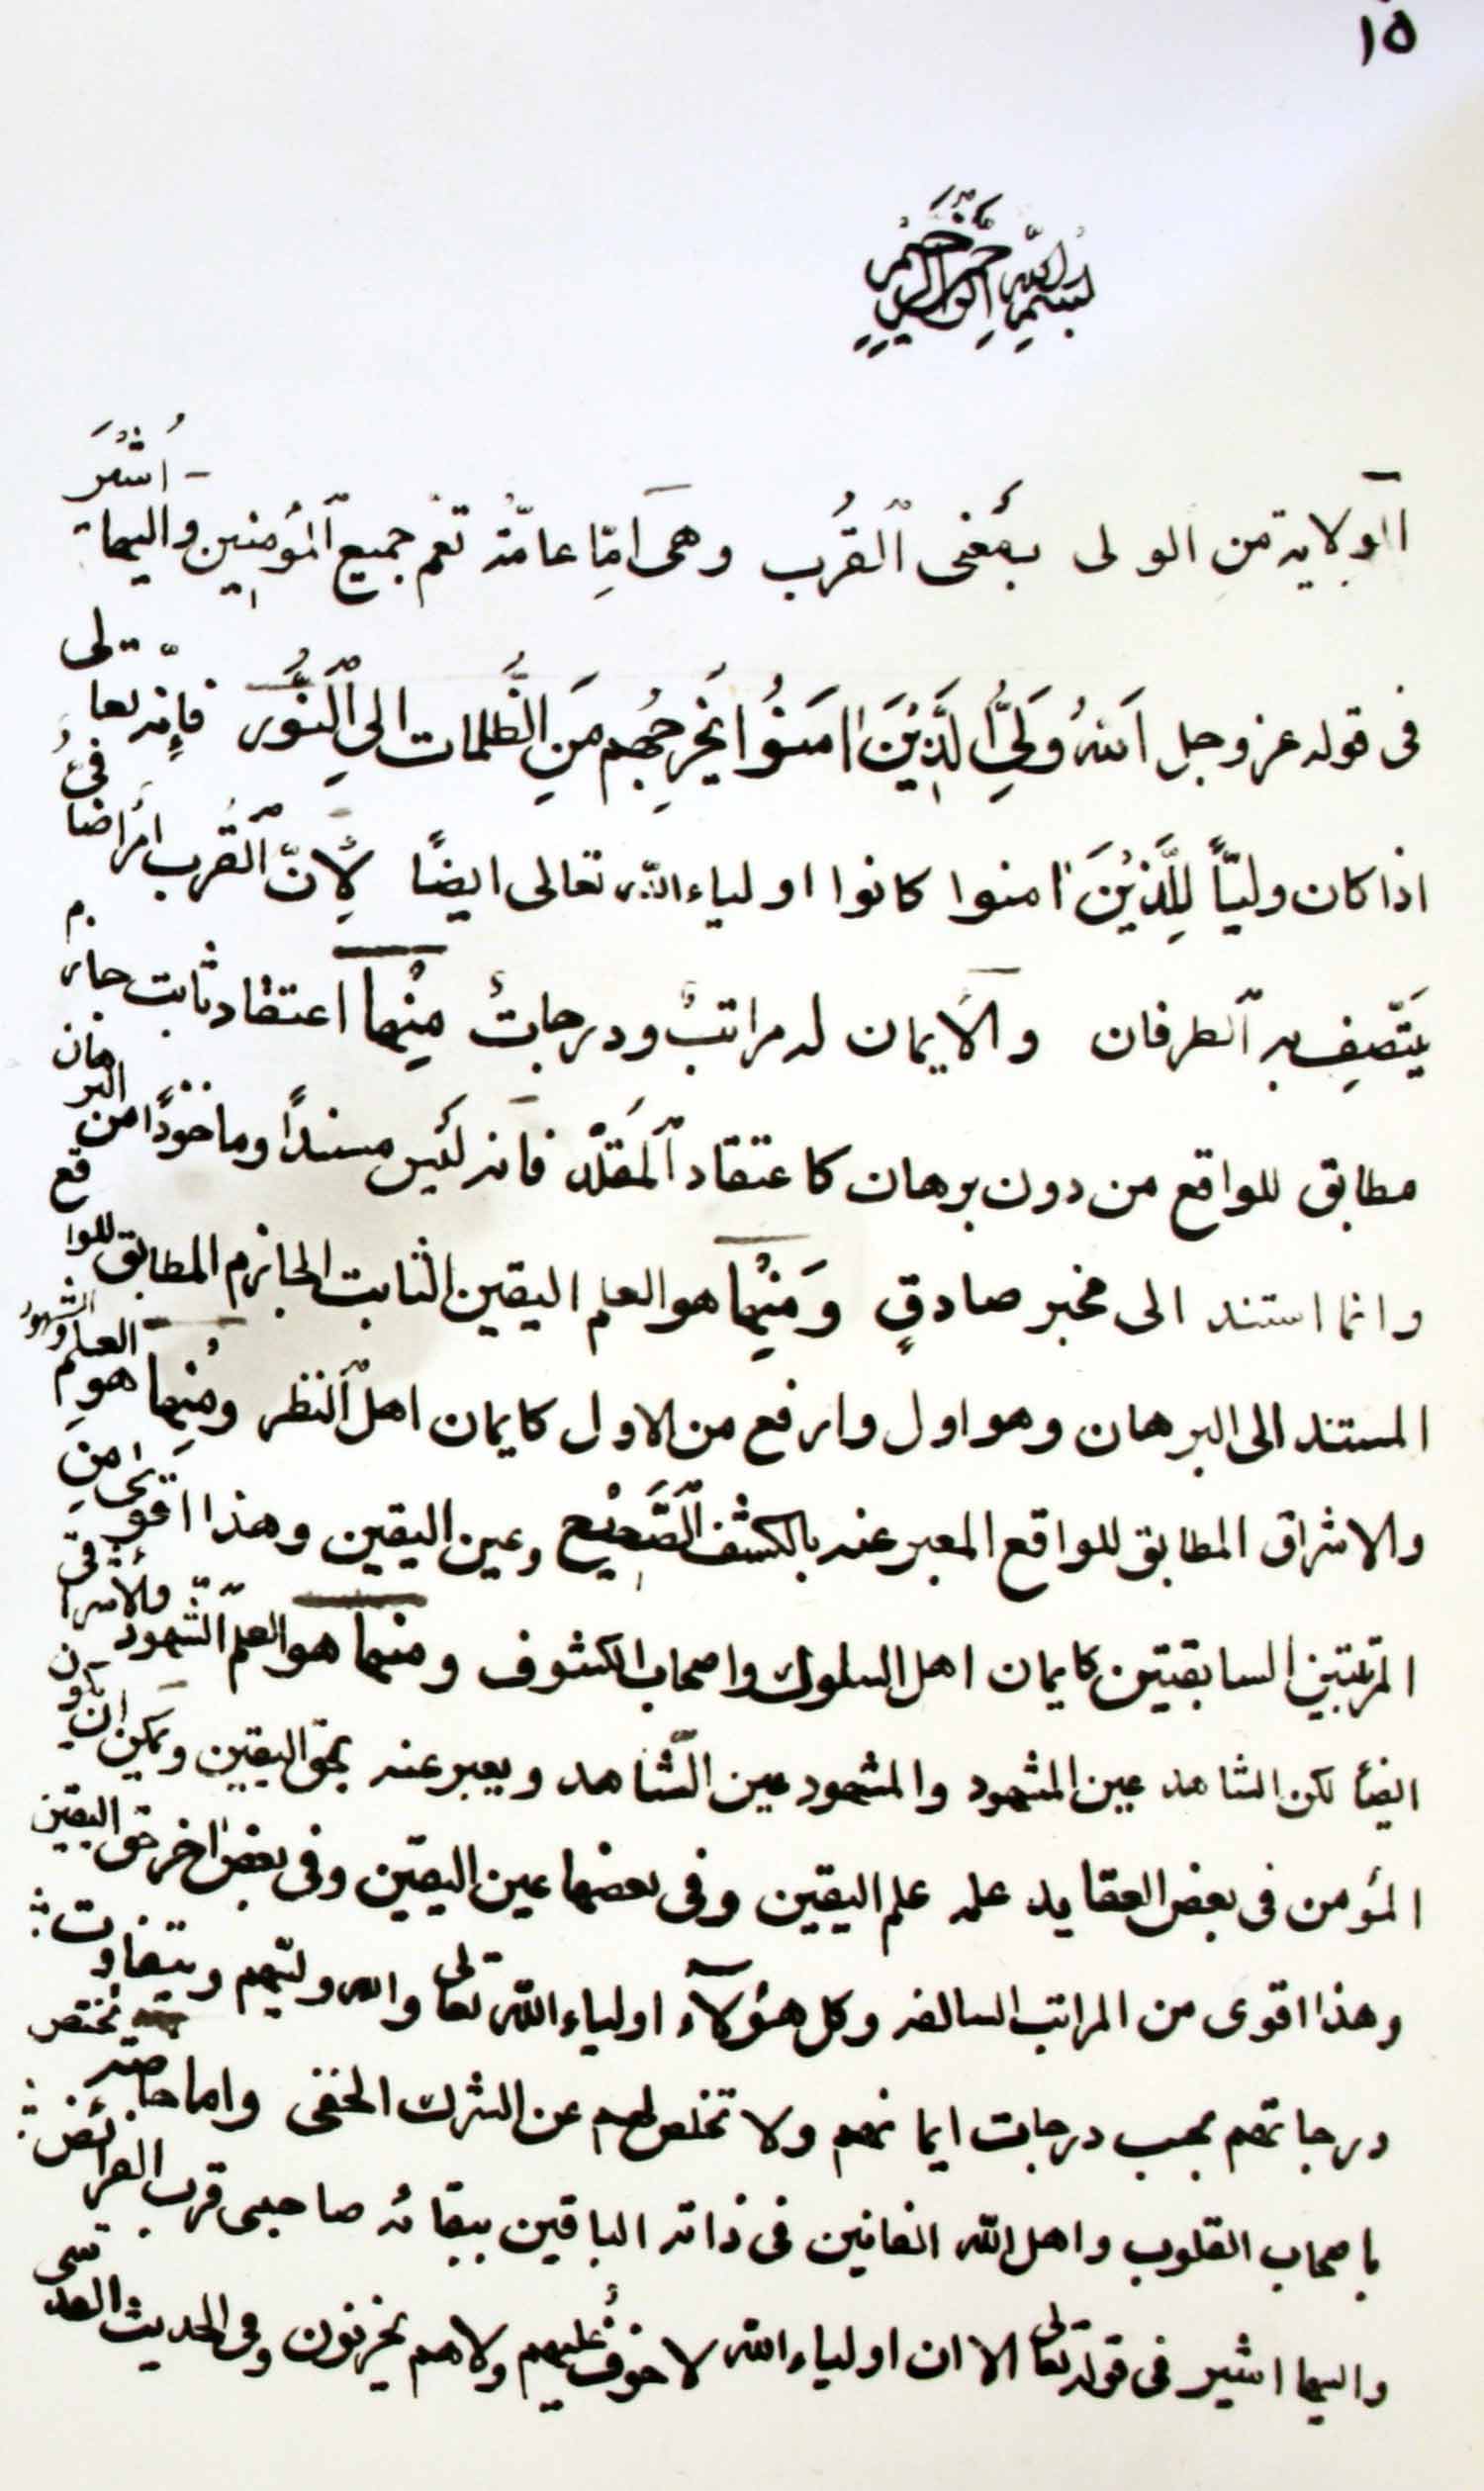 ١٥
بسم الله الرحمن الرحيم
الولاية من الولى بمعنى القُرب وهى امّا عامّة تعم جميع المؤمنين واليها اُشيرَ
فى قوله عز وجل اَللهُ وَلِىُّ الَّذِيْنَ اٰمَنُوْا يُخْرِجُهُم مِنَ الظُّلمات اِلىَ النُّور فاِنّه تعالى
اذا كان وليّاً لِلَّذِيْنَ اٰمنوا كانوا اولياء الله تعالى ايضًا لِأنّ القُرب امر اضافىُّ
يَتَّصِف به الطرفان والايمان له مراتبُ ودرجاتُ مِنْها اعتقاد ثابت جازم
مطابق للواقع من دون برهان كاعتقاد المقلّد فانه ليس مسنداً وماخوذًا من البرهان
وانما استند الى مخبر صادقٍ وَمِنْها هو العلم اليقين الثابت الجازم المطابق للواقع
المستند الى البرهان وهو اول وارفع من الاول كايمان اهل النظر ومِنْها هو العلم الشهودى
والاشراق المطابق للواقع المعبر عنه بالكشف الصَّحِيْح وعين اليقين وهذا اقوىٰ مِن
المرتبتين السابقتين كايمان اهل السلوك واصحاب الكشوف ومنها هو العلم الشّهودى والاشراقى
ايضاً لكن الشاهد عين المشهود والمشهود عين الشّاهد ويعبر عنه بحق اليقين ويمكن ان يكون
المؤمن فى بعض العقايد علمه علم اليقين وفى بعضها عين اليقين وفى بعضٍ اٰخر حق اليقين
وهذا اقوى من المراتب السالفه وكل هٰؤلآء اولياء الله تعالى والله وليّهم ويتفاوت
درجاتهم بحسب درجات ايمانهم ولا تخلص لهم عن الشرك الخفى واما خاصّة يختص
باصحاب القلوب واهل الله الفانين فى ذاته الباقين ببقائه صاحبى قرب الفرائض
واليها اشير فى قوله تعالى الا ان اولياء الله لا خوفُ عليهم ولا هم يحزنون وفى الحديث القدسى